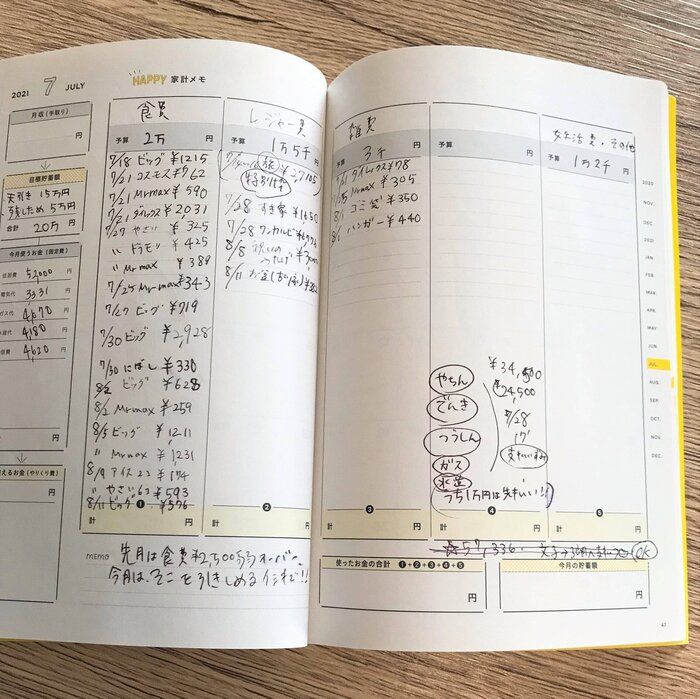 2021 7 JULY
HAPPY 家計メモ
月収(手取り)
円
目標貯蓄額
天引き 15万円
先残しため 5万円
合計 20万 円
今月使うお金(固定費)
住居費 52,000 円
電気代 3331 円
ガス代 4,670 円
水道代 4180 円
通信費 4,620 円
円
使えるお金(やりくり費)
円
食費
予算 2万 円
7/18 ビッグ ¥1215
7/21 コスモス ¥762
7/21 Mrmax ¥590
7/21 ダイレックス ¥2031
7/27 やさい ¥325
〃 ドラモリ ¥425
〃 Mrmax ¥389
7/25 Mrmax ¥343
7/27 ビッグ ¥719
7/30 ビッグ ¥2,928
7/30 にぼし ¥330
8/2 ビッグ ¥628
8/2 Mrmax ¥259
8/5 ビッグ ¥1,211
〃 Mrmax ¥1,231
8/9 アイス22 ¥174
〃 やさい63 ¥593
8/11 ビッグ ¥576
計 ❶ 円
レジャー費
予算 1万5千 円
7/28 すき家 ¥1,650
7/28 ワンカルビ
8/8
8/11
計 ❷ 円
MEMO 先月は食費¥2,500弱オーバー。
今月は、そこを引きしめるイメージで!!
雑費
予算 3千 円
7/21 ダイレックス ¥78
7/25 Mrmax ¥305
8/1 ゴミ袋 ¥350
8/1 ハンガー ¥440
計 ❸ 円
予算 円
やちん
でんき
つうしん
ガス
水道
うち1万円は先払い!!
¥34,500
¥24,500
7/28
計 ❹ 円
妊活費・その他
予算 1万2千 円
計 ❺ 円
57,336.
OK
使ったお金の合計 ❶+❷+❸+❹+❺
円
今月の貯蓄額
円
2020
NOV.
DEC.
2021
JAN.
FEB.
MAR.
APR.
MAY
JUN.
JUL.
AUG.
SEP.
OCT.
NOV.
DEC.
47